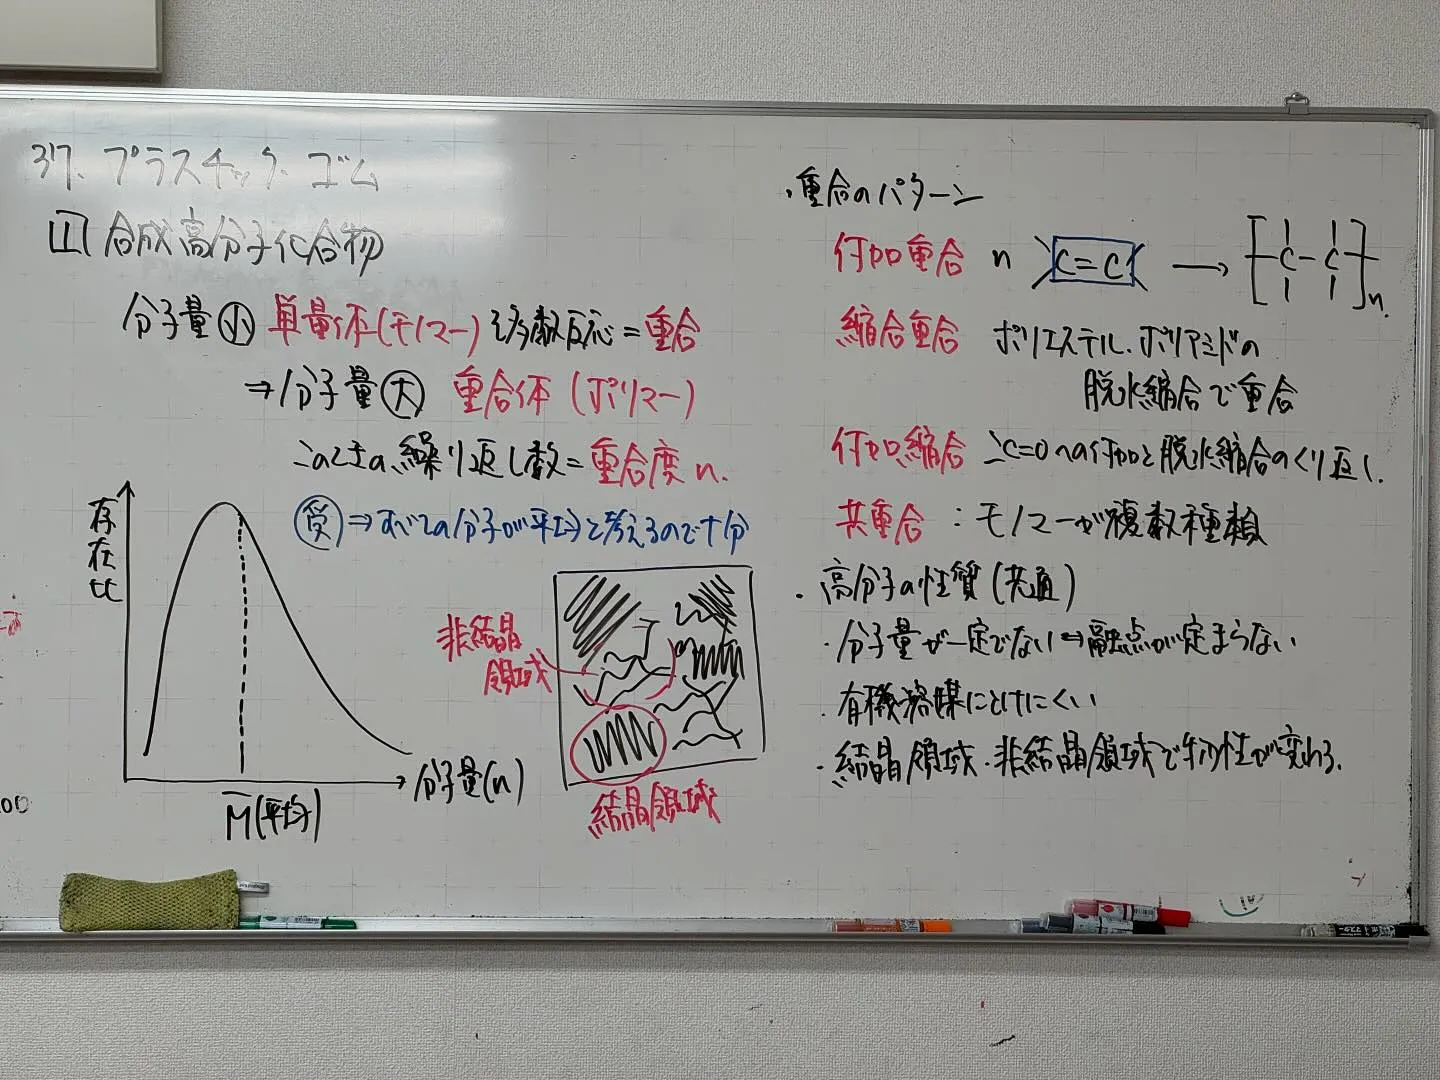 37. プラスチック・ゴム
1 合成高分子化合物
分子量小 単量体(モノマー)を多数反応=重合
⇒分子量大 重合体(ポリマー)
このときの繰り返し数=重合度n.
受⇒すべての分子が平均と考えるので十分
存在比
M(平均)
分子量(n)
非結晶領域
結晶領域
・重合のパターン
付加重合 n C=C → [-C-C-]n.
縮合重合 ポリエステル、ポリアミドの
脱水縮合で重合
付加縮合 C=Oへの付加と脱水縮合のくり返し.
共重合:モノマーが複数種類
・高分子の性質(共通)
・分子量が一定でない⇔融点が定まらない
・有機溶媒にとけにくい
・結晶領域・非結晶領域で物性が変わる.